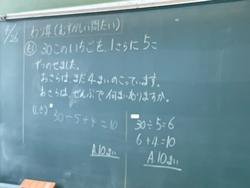 わり算(むずかしい問だい)
30このいちごを、1さらに5こ
ずつのせました。
おさらはまだ4まいのこっています。
おさらは、ぜんぶで何まいありますか。
(しき)
30÷5+4=10
A 10まい
30÷5=6
6+4=10
A 10まい